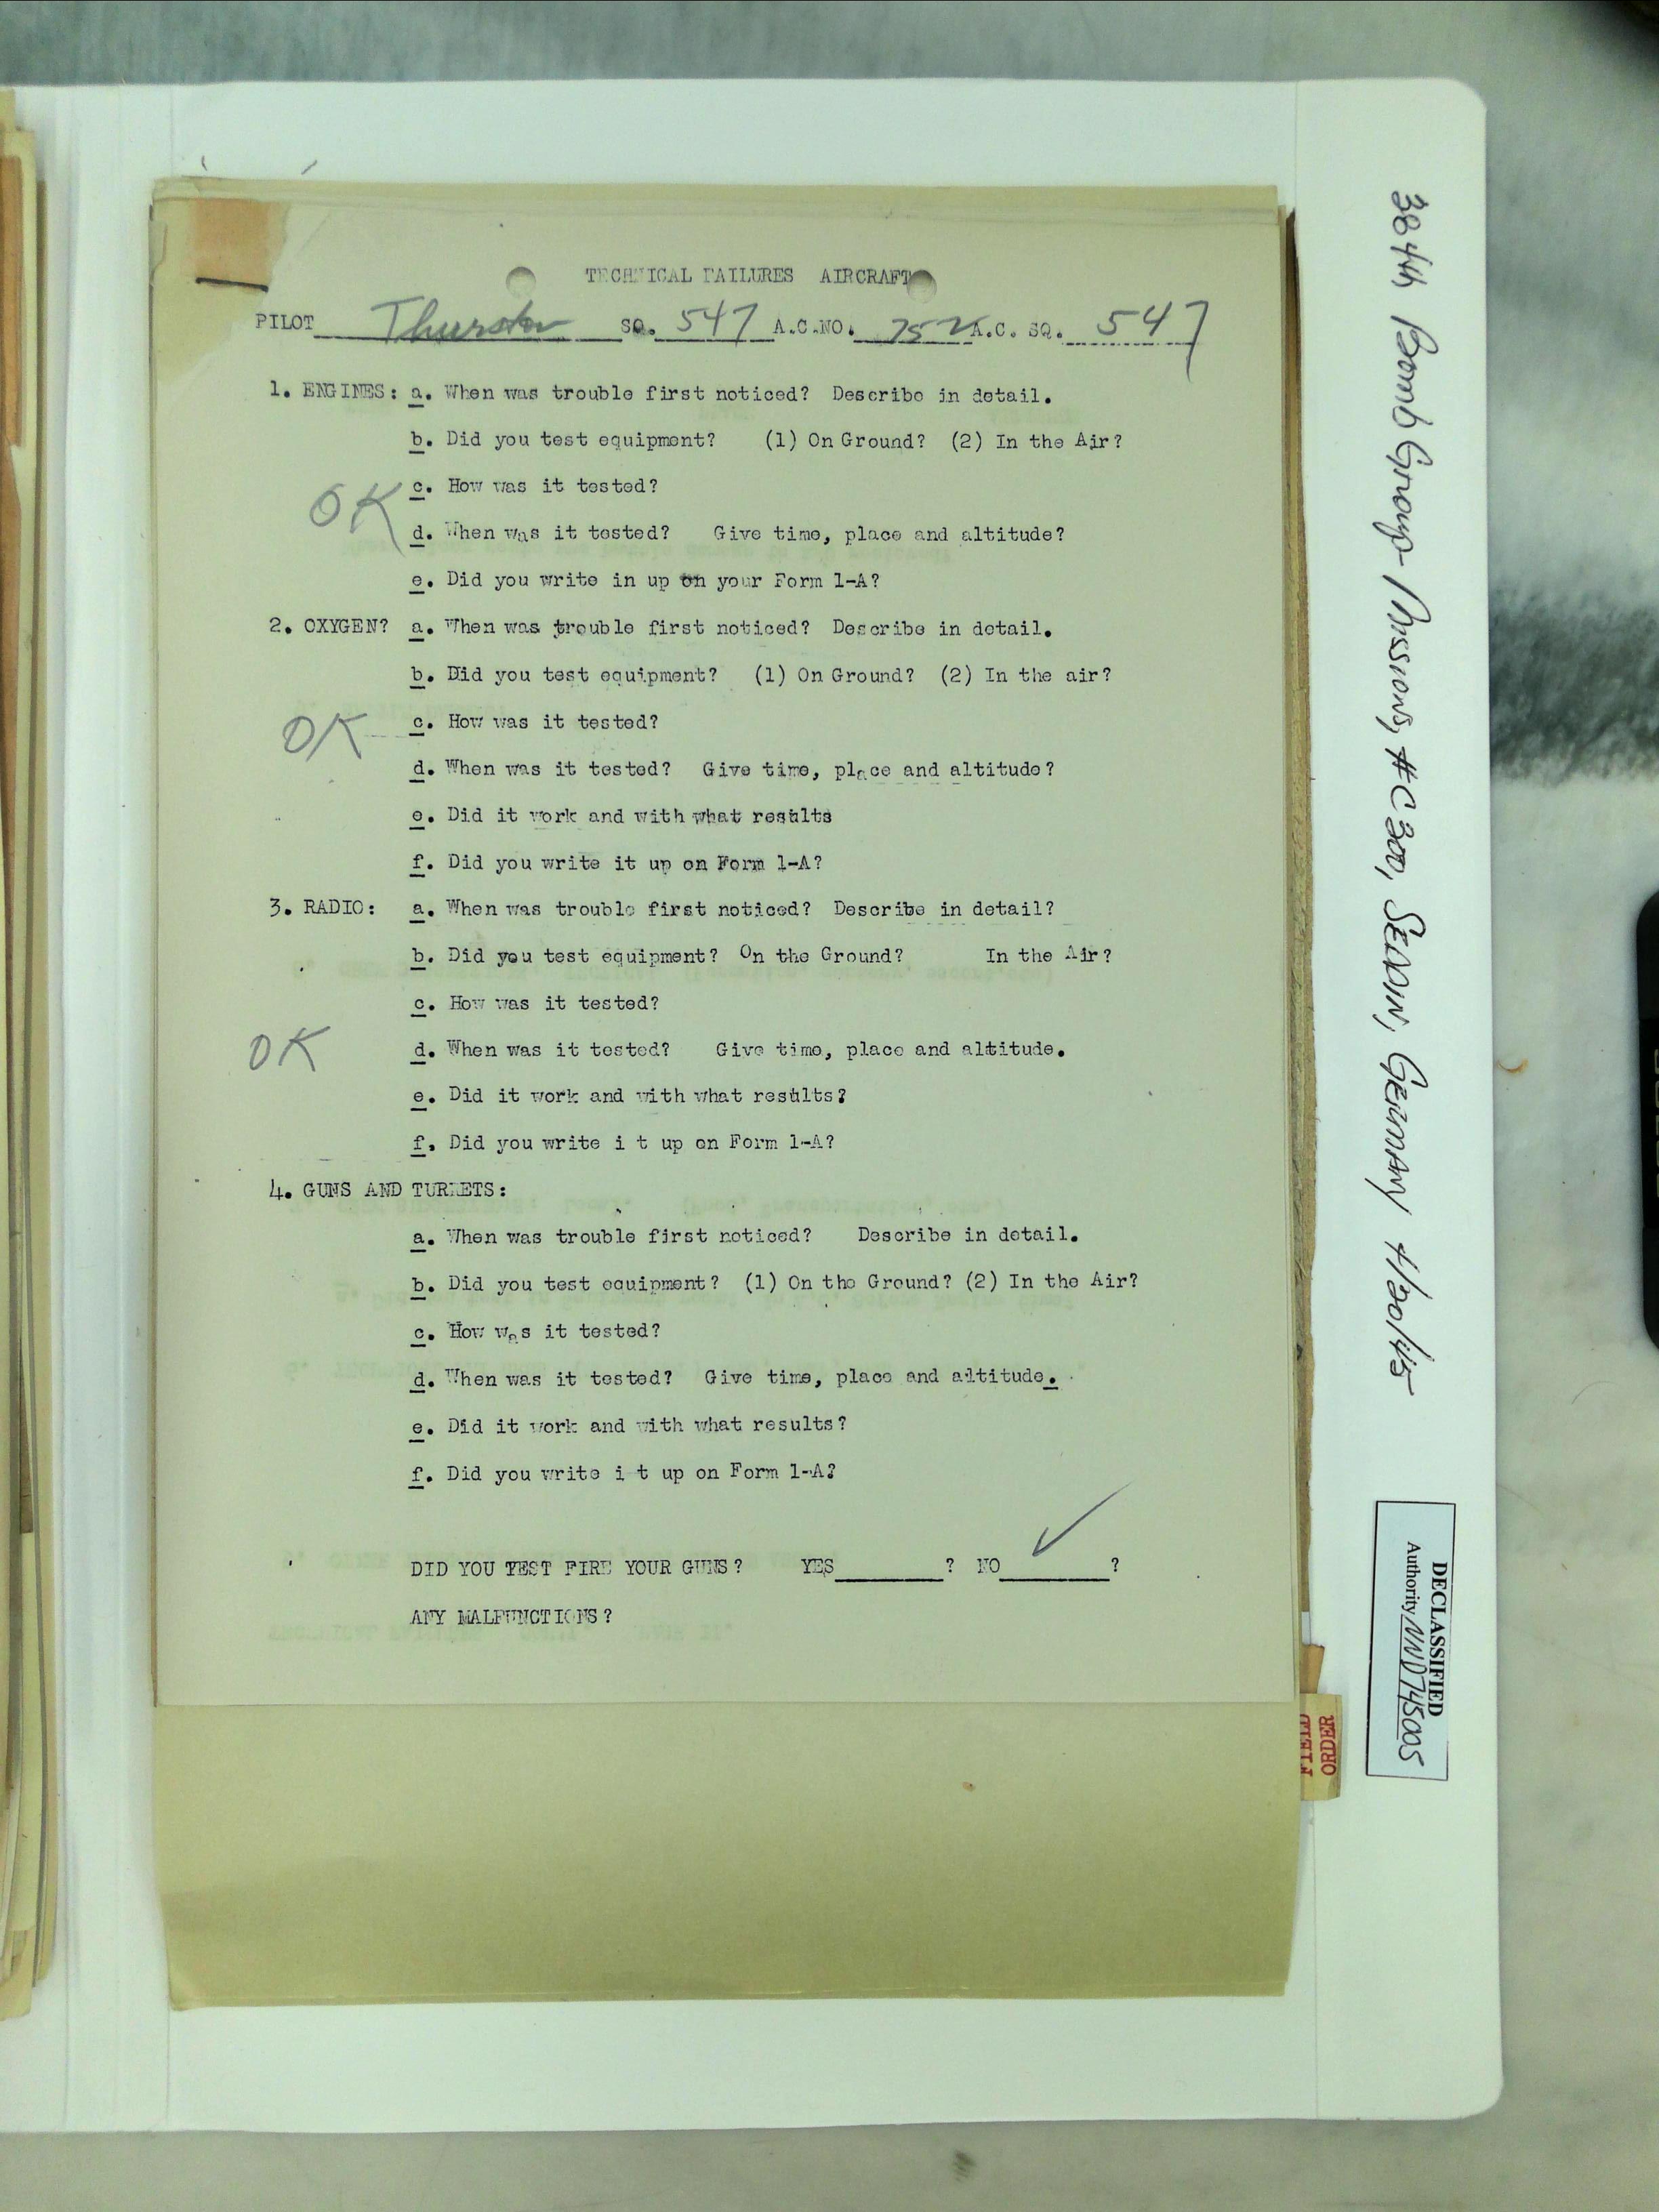 TECHNICAL FAILURES AIRCRAFT
PILOT Thurston SQ. 547 A.C.NO. 752 A.C. SQ. 547
1. ENGINES: a. When was trouble first noticed? Describe in detail.
b. Did you test equipment? (1) On Ground? (2) In the Air?
c. How was it tested?
OK
d. When was it tested? Give time, place and altitude?
e. Did you write in up on your Form 1-A?
2. OXYGEN? a. When was trouble first noticed? Describe in detail.
b. Did you test equipment? (1) On Ground? (2) In the air?
OK c. How was it tested?
d. When was it tested? Give time, place and altitude?
e. Did it work and with what results
f. Did you write it up on Form 1-A?
3. RADIO: a. When was trouble first noticed? Describe in detail?
b. Did you test equipment? On the Ground? In the Air?
c. How was it tested?
OK d. When was it tested? Give time, place and altitude.
e. Did it work and with what results?
f. Did you write i t up on Form 1-A?
4. GUNS AND TURRETS:
a. When was trouble first noticed? Describe in detail.
b. Did you test equipment? (1) On the Ground? (2) In the Air?
c. How was it tested?
d. When was it tested? Give time, place and altitude.
e. Did it work and with what results?
f. Did you write i t up on Form 1-A?
DID YOU TEST FIRE YOUR GUNS? YES ? NO ✓ ?
ANY MALFUNCTIONS?
FIELD
ORDER
384th Bomb Group - Missions, Germany 4/20/45
DECLASSIFIED
Authority NND745005